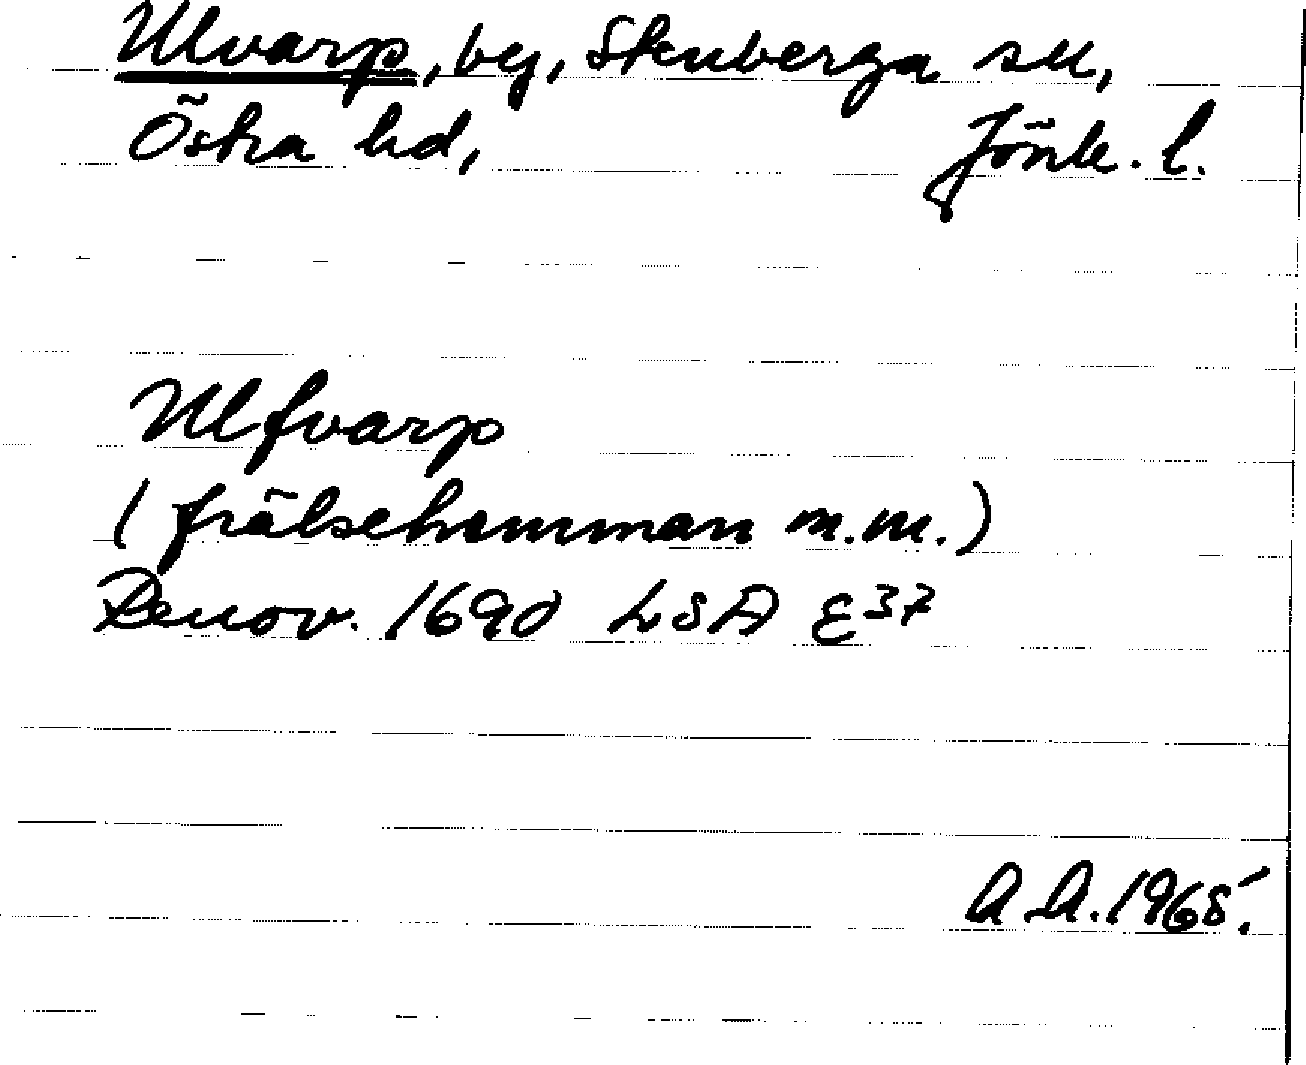 Ulvarp, by, Stenberga sn,
Östra hd, Jönk. l.
Ulfvarp
(frälsehemman m.m.)
Renov. 1690 LSA E37
A.A. 1965.